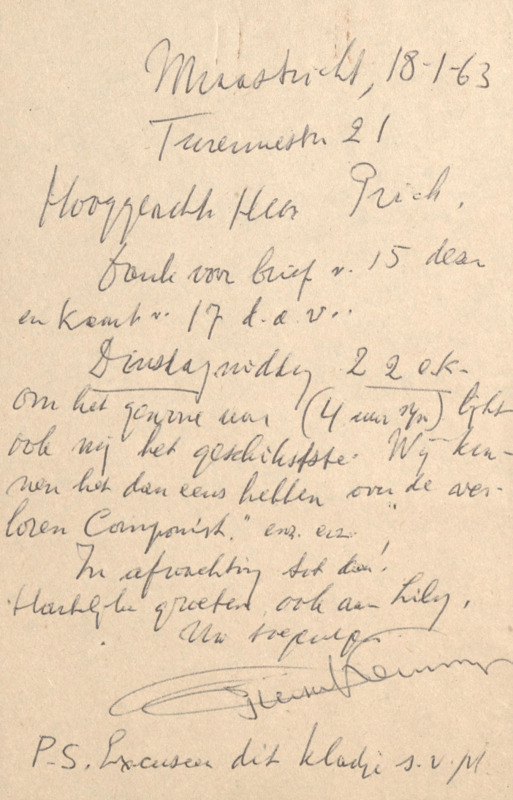 Maastricht, 18-1-63
Turennestr 21
Hooggeachte Heer Prick,
Dank voor brief v. 15 dezer
en kaart v. 17 d.a.v..
Dinsdagmiddag 22 e.k.
om het genoemde uur (4 uur n.m.) lijkt
ook mij het geschiktste. Wij kun-
nen het dan eens hebben over de "ver-
loren Componist." enz. enz.
In afwachting tot dan!
Hartelijke groeten, ook aan Lily,
Uw toegenegen
P.S. Excuseer dit kladje s.v.pl.